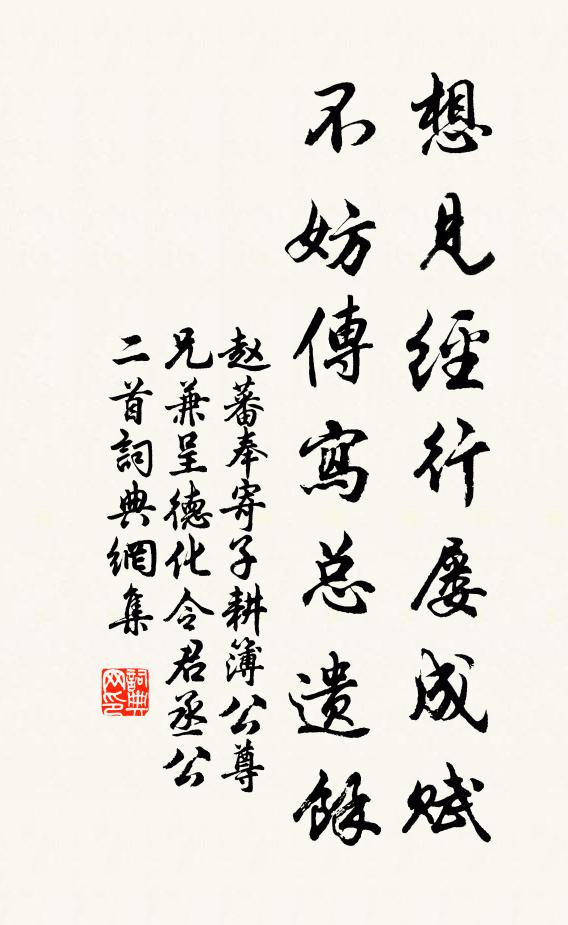 想見經行屡成赋
不妨傳寫总遺餘
赵蕃奉寄子耕簿公尊
兄兼呈德化令君丞公
二首詞典網集
詞典网印